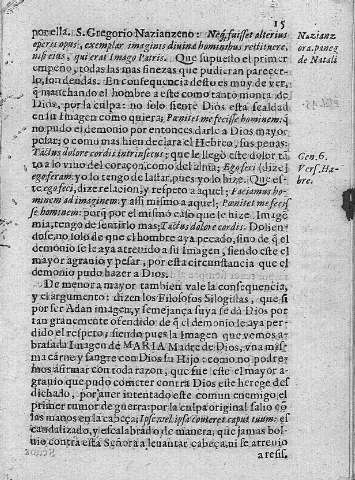 15
por ella. S. Gregorio Nazianzeno: Neq, fuisset alterius
operis opus, exemplar imaginis divinæ hominibus restituere,
nisi eius, qui erat Imago Patris. Que supuesto el primer
empeño, todas las mas finezas que pudieran parecer-
lo, son deudas. En consequencia desto es muy de ver,
q manchando el hombre a este como tanto nunca de
Dios, por la culpa: no solo siente Dios esta fealdad
en su Imagen como quiera; Pœnitet me fecisse hominem: q
no pudo el demonio por entonces darle a Dios mayor
pesar; o como mas bien declara el Hebreo, sus penas:
Tactus dolore cordis intrinsecus: que le llegò este dolor tã
to a lo vivo del coraçon, como del alma; Ego feci (dize)
ego feram: yo lo tengo de lastar, pues yo lo hize. Que es-
te ego feci, dize relacion, y respeto a aquel; Faciamus ho-
minem ad imaginem: y assi mismo a aquel; Pœnitet me fecis
se hominem: porq por el mismo caso que le hize Image
mia, tengo de sentirlo mas; Tactus dolore cordis. Dolien-
dose, no solo de que el hombre aya pecado, sino de q el
demonio se le aya atrevido a su Imagen, siendo este el
mayor agravio y pesar, por esta circunstancia que el
demonio pudo hazer a Dios.
De menor a mayor tambien vale la consequencia,
y el argumento: dizen los Filosofos Silogistas, que si
por ser Adan imagen, y semejança suya se dà Dios por
tan gravemente ofendido de q el demonio le aya per-
dido el respeto; siendo pues la Imagen que vemos a-
brasada Imagen de MARIA Madre de Dios, vna mis-
ma carne y sangre con Dios su Hijo: como no podre-
mos afirmar con toda razon, que fue este el mayor a-
gravio que pudo cometer contra Dios este herege des
dichado, por aver intentado este comun enemigo el
primer rumor de guerra: por la culpa original salio cõ
las manos en la cabeça; Ipse, vel ipsa conteret caput tuum: es
candalizado, y escalabrado de manera, que jamas bol-
vio contra esta Señora a levantar cabeça, ni se atrevio
a resis.
Nazianz
ora. in eg
de Natali
Gen. 6.
Vers. He-
bre.